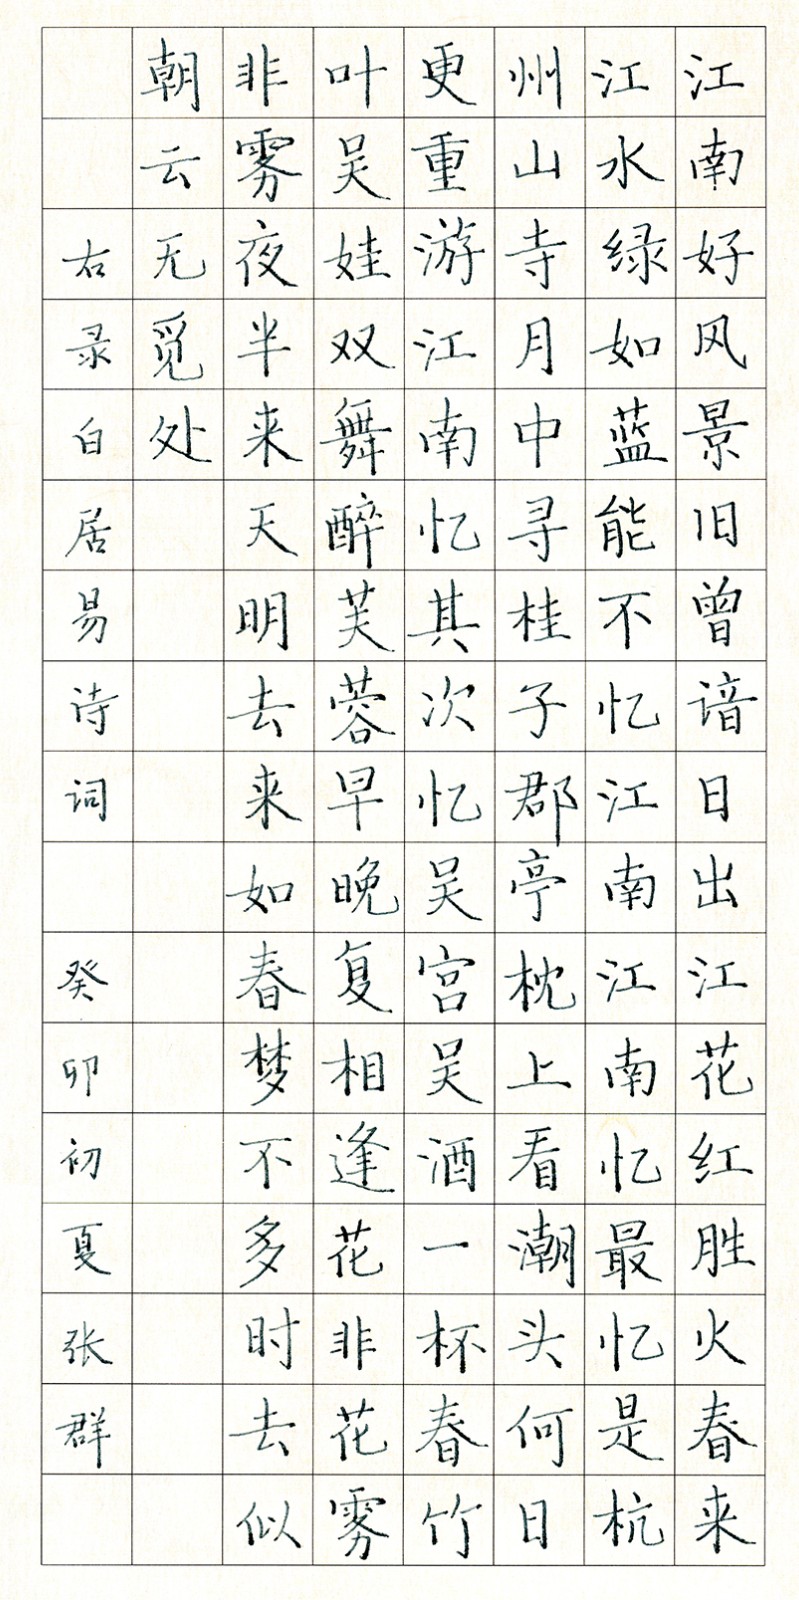 江南好风景旧曾谙日出江花红胜火春来
江水绿如蓝能不忆江南江南忆最忆是杭
州山寺月中寻桂子郡亭枕上看潮头何日
更重游江南忆其次忆吴宫吴酒一杯春竹
叶吴娃双舞醉芙蓉早晚复相逢花非花雾
非雾夜半来天明去来如春梦不多时去似
朝云无觅处
右录白居易诗词 癸卯初夏张群